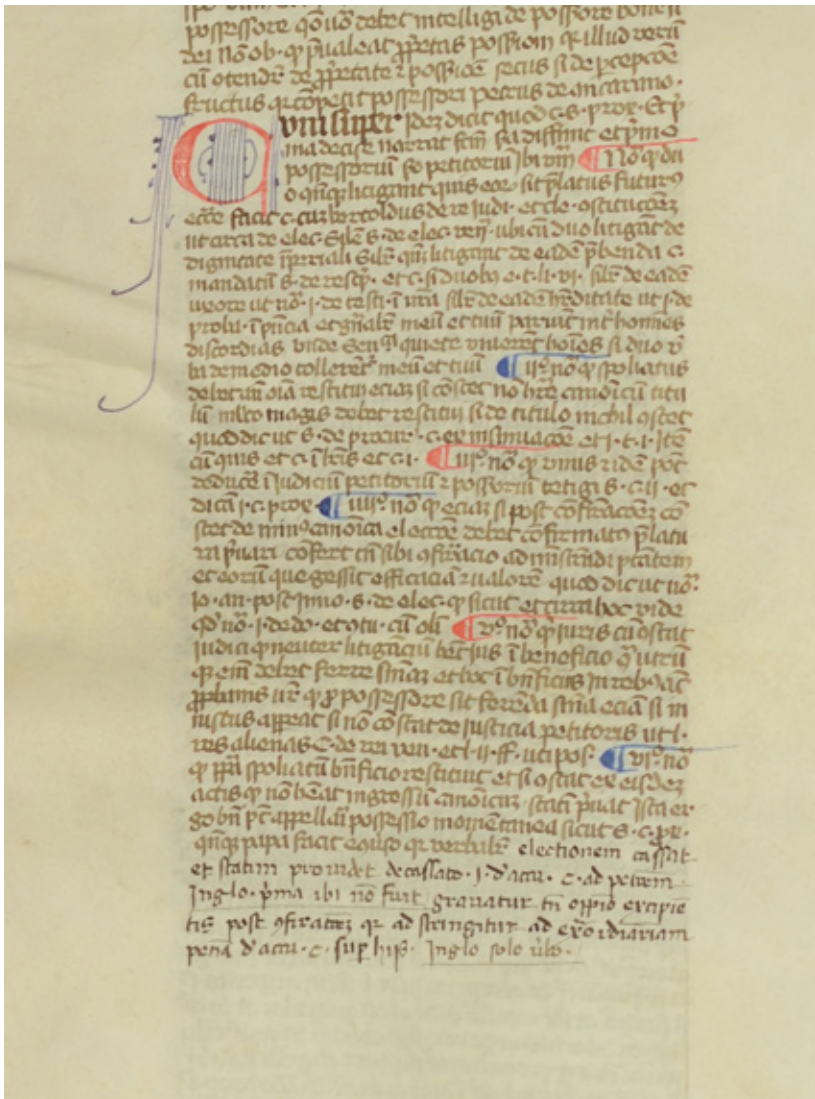 possessore qd nō debet intelligi de possōre bone fi
dei nō ob. qͥ p̄ualeat ꝓp̄etas possiom qr illud verū
cū otendr̄ de ꝓp̄etate ⁊ possiōē secus si de ꝑcepcōē
fructus qr cōpetit possessori petrus de ancarano.
Cum super Idez dicit quod c. s. prox. Et pͥ
ma decise narrat fcm̄ scd̓a diffinit et pͥmo
possessoriū sō petitoriū ibi vm̄ Nō qͥ du
o qn̄qꝫ litigant quis eoꝝ sit p̄latus futurꝰ
facit c. cuz bertoldus de re iudi. et cle. ostitucōez
ut circa de elec. silē s. de elec. ven̄. ubi cū duo litigāt de
dignitate īperiali silr̄ qn̄ litigant de eadē p̄benda c.
mandatū s. de rescp̄. et c. si duobꝰ e. t. li. vi. silr̄ de eadē
uxore ut nō. j. de testi. ī ura silr̄ de eadē hr̄ditate ut j. de
prolu. ī pn̄cia et gn̄alr̄ meū et tuū pariūt int̓ homines
discordias unde Sen̄. quiete viuerēt hoīes si duo v̓
ba de medio tollerēt.ˢ meū et tuū ijº. nō qͥ spoliatus
debet añ oīā restitui eciaꝫ si cōstet nō hr̄e canōicū titu
lū mlto magis debet restitui si de titulo nichil ostet
quod dic ut s. de procur̄. c. ex insinuacōe et j. t. j. Itē
cū quis et c. ī lr̄is et c. j. iijº. nō qͥ vnus ⁊ idē pōt
deducē ī iudiciū petitoriū ⁊ possoriū tetigi s. c. ij. et
dicā j. c. prox. iiijº. nō qͥ eciaꝫ si post cōfirmacōeꝫ cō
stet de minꝰ canōica electōe debet cōfirmatꝰ p̄latu
ra pͥuari cōfert tn̄ sibi ꝯfirmacio admīstrandi ptātem
et eorū que gessit efficaciā ⁊ valorē quod dic ut nō.
Io. an. post Inno. s. de elec. qͥ sicut et circa hoc vide
qd̓ nō. j. de do. et otu. cū olī vº. nō qͥ iuris cū ostat
iudici qͥ neuter litiganciū het ius ī beneficio ꝯ̄ utrū
qꝫ em̄ debet ferre sniaꝫ et hoc ī bn̄ficiis In rebꝰ aūt
ꝓphanis ur̄ qͥ ꝓ possessore sit ferēda sn̄ia eciā si in
iustus appeat si nō cōstat de iusticia petitoris ut l.
res alienas C. de rei ven. et l. ij. ff. uti pos. vjº. nō
qͥ pp̄a spoliatū bn̄ficio restituit et si ostat ex eisdeꝫ
actis qͥ nō heat ingressū canōicuꝫ statī pͥuat Ista er
go bn̄ pōt appellāi possessio momentanea sicut s. c. pͥx.
qn̄qꝫ papa facit eqͥuso qr verbalr̄ electionem cassat
et statim prouidet de cassato. j. d'accu. c. ad petitem
Inglo. pͥma ibi nō fuit grauatur tn̄ oppō excipiē
tis post ꝯfirmatōeꝫ qr ad stringitur ad exᵒordiariam
penā d'accu. c. suꝑ hijs. Inglo solo vͥbo.